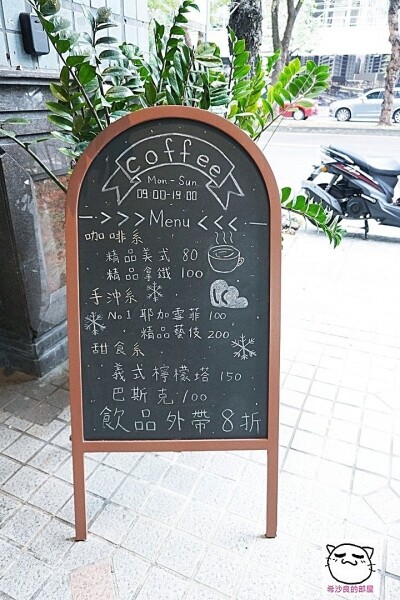 coffee
Mon - Sun
09:00-19:00
> > > Menu < < <
咖啡系
精品美式 80
精品拿鐵 100
手沖系
No.1 耶加雪菲 100
精品藝伎 200
甜食系
義式檸檬塔 150
巴斯克 100
飲品外帶8折
希沙良的部屋